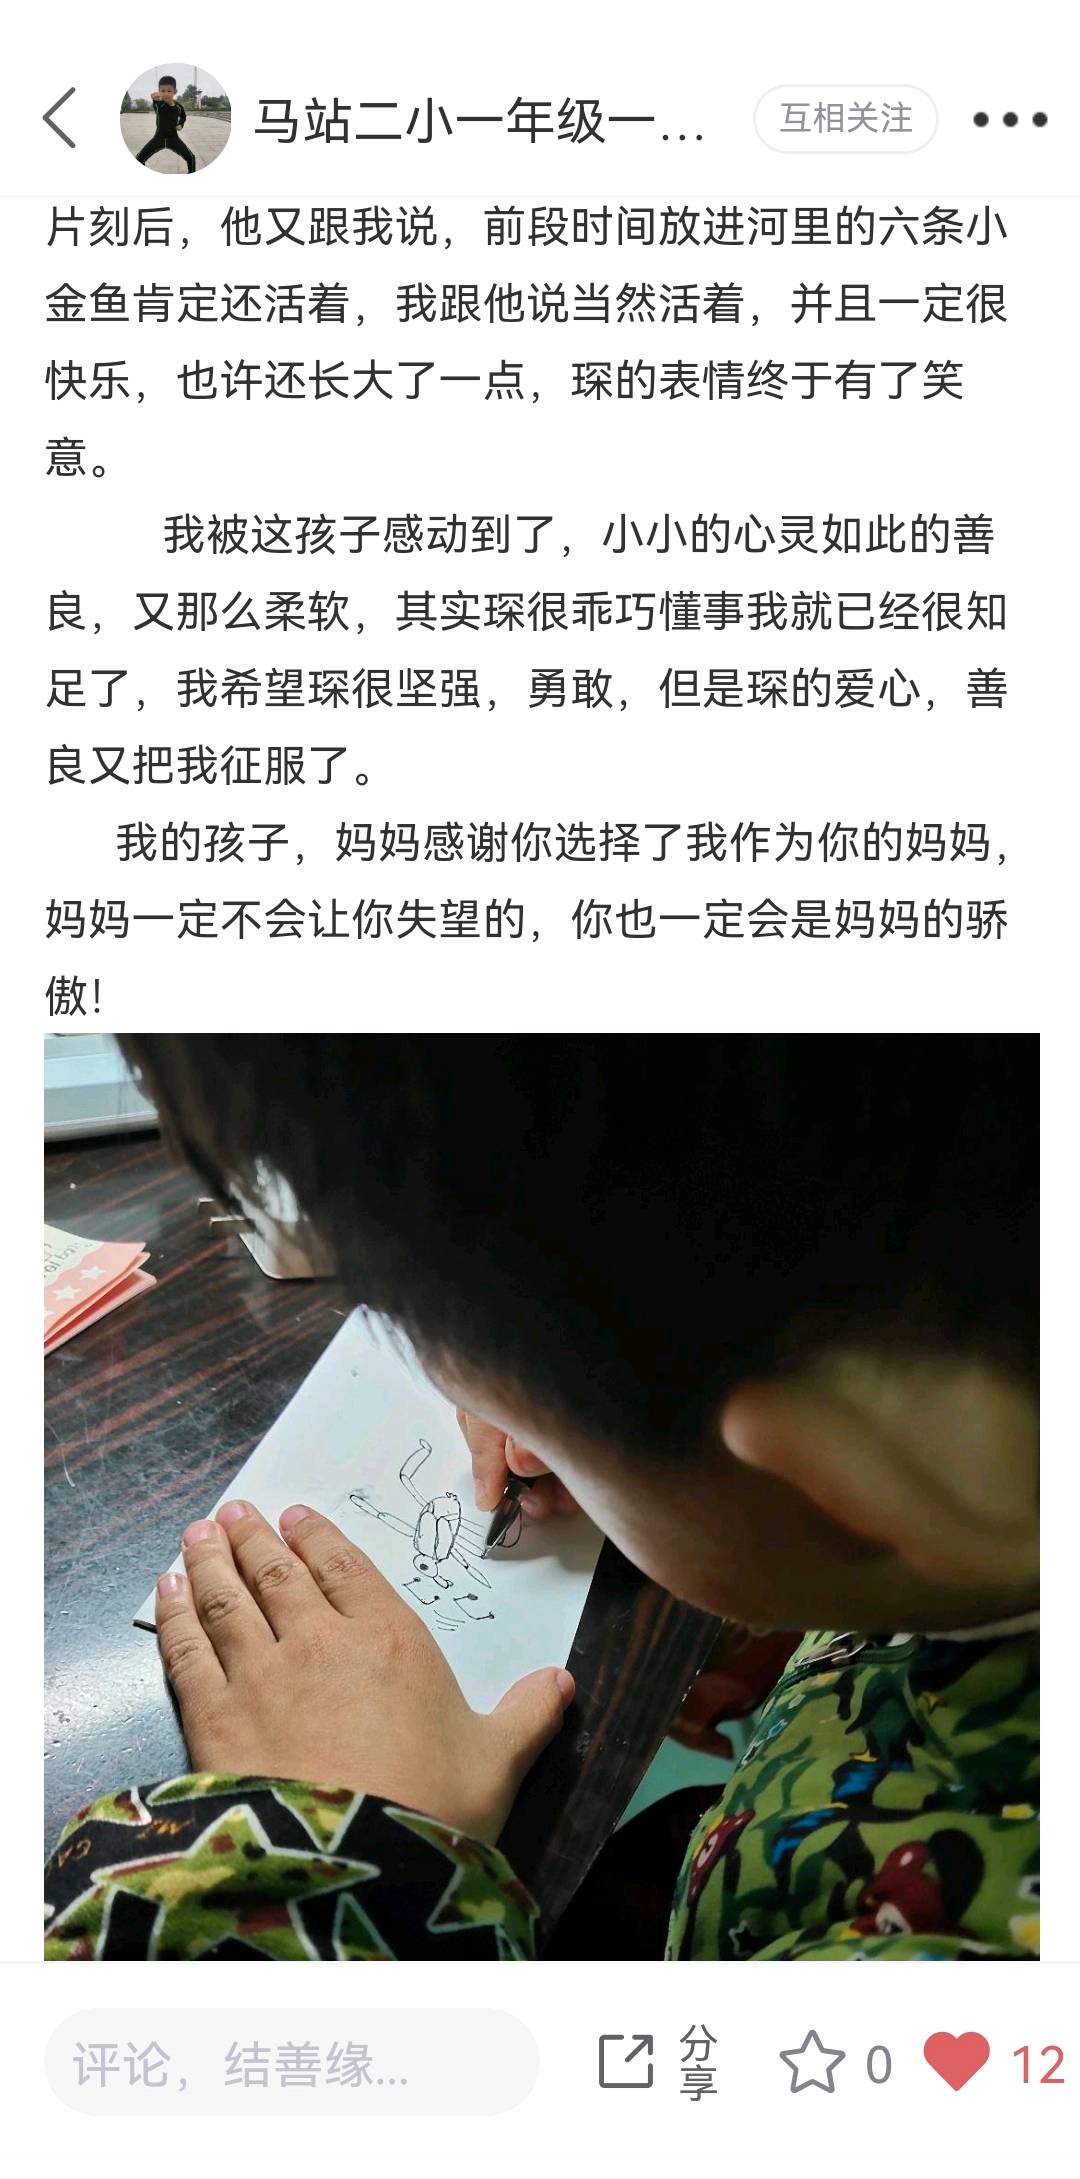 马站二小一年级一...
互相关注
片刻后，他又跟我说，前段时间放进河里的六条小
金鱼肯定还活着，我跟他说当然活着，并且一定很
快乐，也许还长大了一点，琛的表情终于有了笑
意。
我被这孩子感动到了，小小的心灵如此的善
良，又那么柔软，其实琛很乖巧懂事我就已经很知
足了，我希望琛很坚强，勇敢，但是琛的爱心，善
良又把我征服了。
我的孩子，妈妈感谢你选择了我作为你的妈妈，
妈妈一定不会让你失望的，你也一定会是妈妈的骄
傲！
评论，结善缘...
分
享
0
12